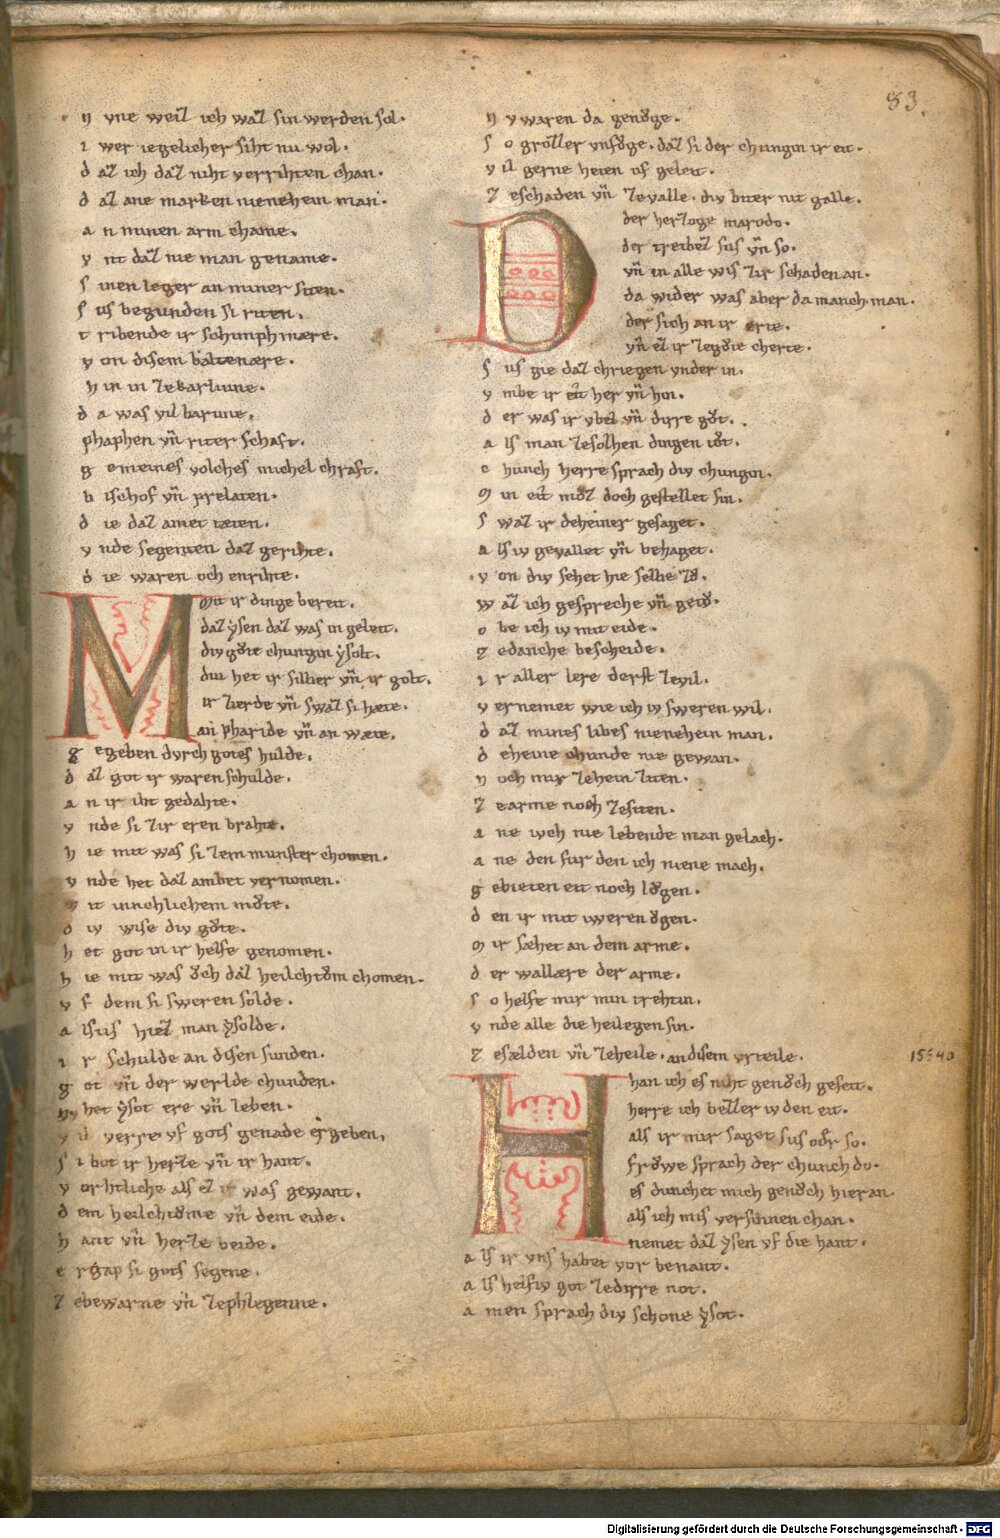 83.
n vne weil ich wal sin werden sol.
i wer iegelicher siht nu wol.
d aZ ich daZ niht verrihten chan.
d aZ ane marken nienehein man.
a n minen arm chame.
v nt daZ nie man gename.
s inen leger an miner siten.
s us begunden si riten.
t ribende ir schimphmære.
v on disem baltenære.
h in in Zekarliune.
d a was vil barune.
phaphen vn̄ riter schaft.
g emeines volches michel chraft.
b ischof vn̄ prelaten.
d ie daZ amet tæten.
v nde segenten daZ gerihte.
d ie waren och enrihte.
Mit ir dinge bereit.
daZ ẏsen daZ was in geleit.
div gůte chungin ẏsolt.
diu het ir silber vn̄ ir golt.
ir Zierde vn̄ swaZ si hæte.
an pharide vn̄ an wæte.
g egeben dvrch gotes hulde.
d aZ got ir waren schulde.
a n ir iht gedahte.
v nde si Zir eren brahte.
h ie mit was si Zem munster chomen.
v nde het daZ ambet vernomen.
m it innchlichem můte.
d iv wise div gůte.
h et got in ir helfe genomen.
h ie mit was ôch daZ heilchtům chomen.
v f dem si sweren solde.
a lsus hieZ man ẏsolde.
i r schulde an disen sunden.
g ot vn̄ der werlde chunden.
nv het ẏsot ere vn̄ leben.
v il verre vf gots genade ergeben.
s i bot ir herZe vn̄ ir hant.
v orhtliche als eZ ir was gewant.
d em heilchtůme vn̄ dem eide.
h ant vn̄ herZe beide.
e rgap si gots segene.
Z ebewarne vn̄ Zephlegenne.
n v waren da genůge.
s o groZZer vnfůge. daZ si der chungin ir eit.
v il gerne heten uf geleit.
Z eschaden vn̄ Zevalle. div biter nit galle.
Der herZoge marodo.
der treibeZ sus vn̄ so.
vn̄ in alle wis Zir schaden an.
da wider was aber da manch man.
der sich an ir erte.
vn̄ eZ ir Zegůte cherte.
s us gie daZ chriegen vnder in.
v mbe ir eit her vn̄ hin.
d er was ir vbel vn̄ dirre gůt.
a ls man Zesolhen dingen tůt.
c hunch herre sprach div chungin.
m in eit můZ doch gestellet sin.
s waZ ir deheiner gesaget.
a ls iv gevallet vn̄ behaget.
v on div sehet hie selbe Zů.
w aZ ich gespreche vn̄ getů.
o be ich iv mit eide.
g edanche bescheide.
i r aller lere derst Zevil.
v ernemet wie ich iv sweren wil.
d aZ mines libes nienehein man.
d eheine chunde nie gewan.
n och mir Zehein Ziten.
Z earme noch Zesiten.
a ne iveh nie lebende man gelach.
a ne den fur den ich niene mach.
g ebieten eit noch lôgen.
d en ir mit iweren ôgen.
m ir sæhet an dem arme.
d er wallære der arme.
s o helfe mir min trehtin.
v nde alle die heilegen sin.
Z esælden vn̄ Zeheile. an disem vrteile.
15540
Han ich es niht genôch geseit.
herre ich beZZer iv den eit.
als ir mir saget sus odr so.
frôwe sprach der chunch do.
es dunchet mich genôch hieran.
als ich mis versinnen chan.
nemet daZ ẏsen vf die hant.
a ls ir vns habet vor benant.
a ls helf iv got Zedirre not.
a men sprach div schone ẏsot.
Digitalisierung gefördert durch die Deutsche Forschungsgemeinschaft - DFG